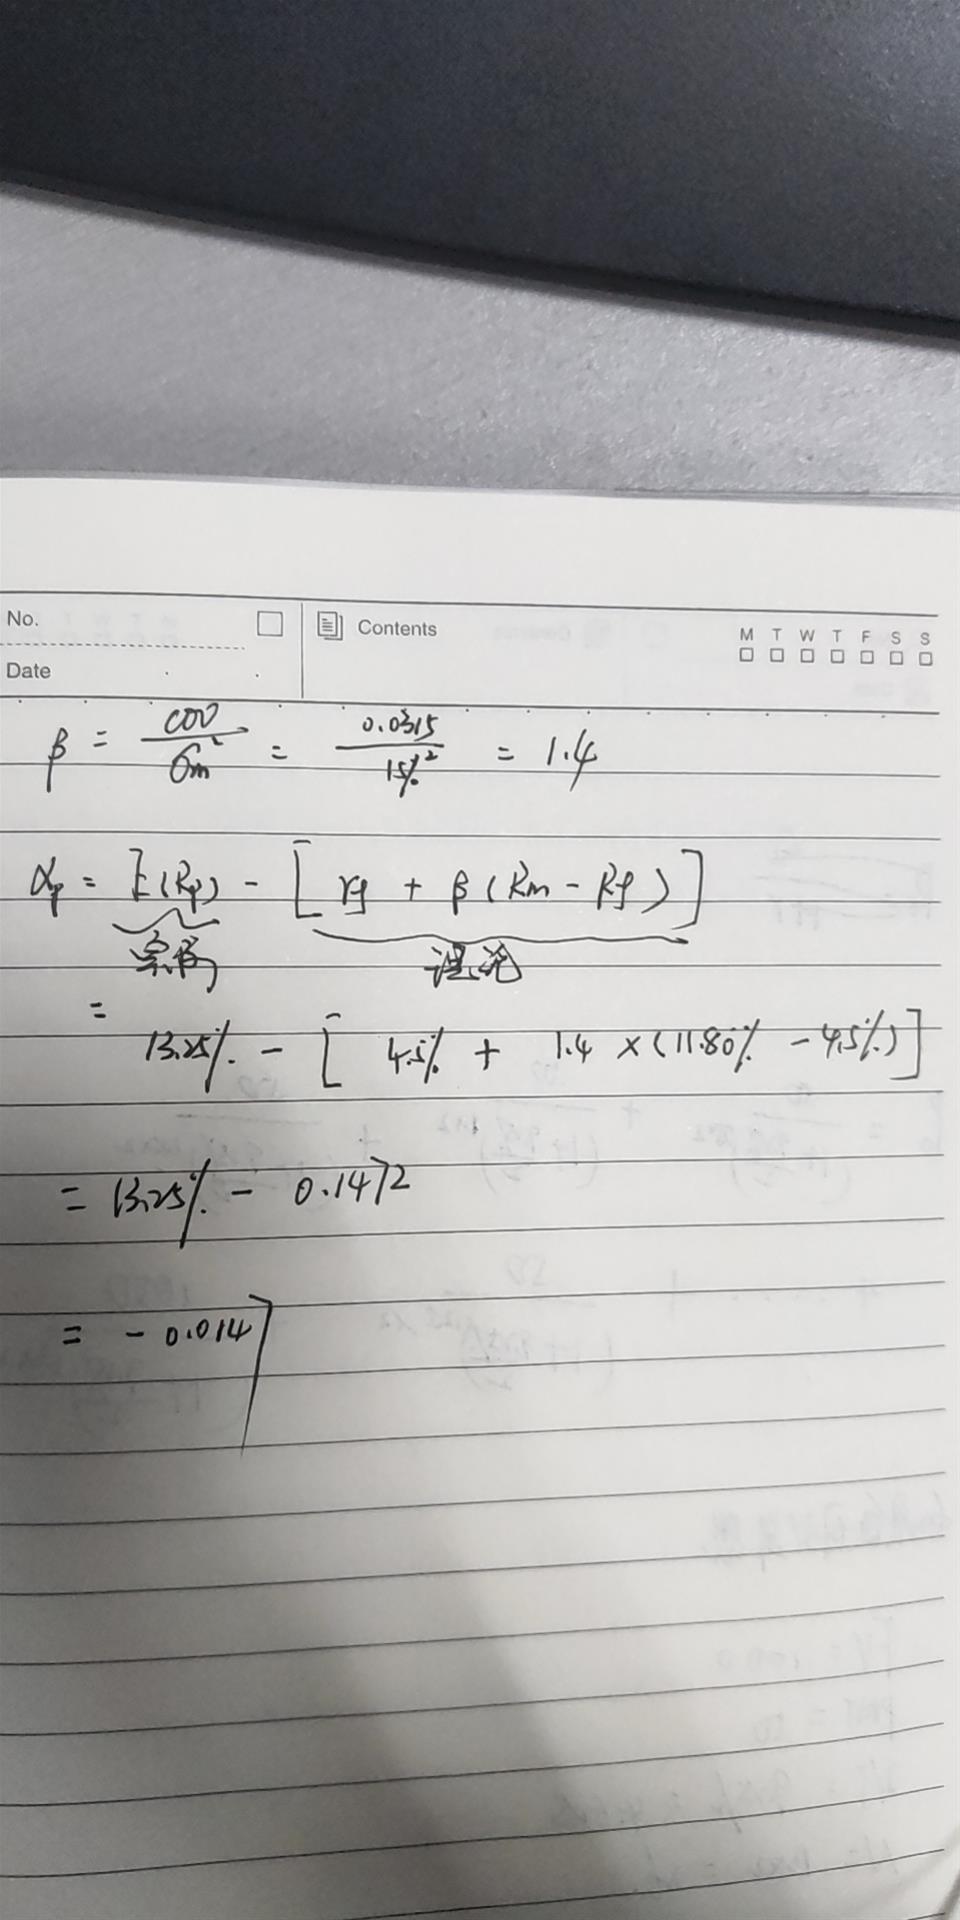 No.
Contents
M T W T F S S
Date
β = cov / σm² = 0.0315 / 15%² = 1.4
αp = E(Rp) - [ rf + β (Rm - Rf) ]
实际 理论
=
13.25% - [ 4.5% + 1.4 × (11.80% - 4.5%) ]
= 13.25% - 0.1472
= - 0.0147